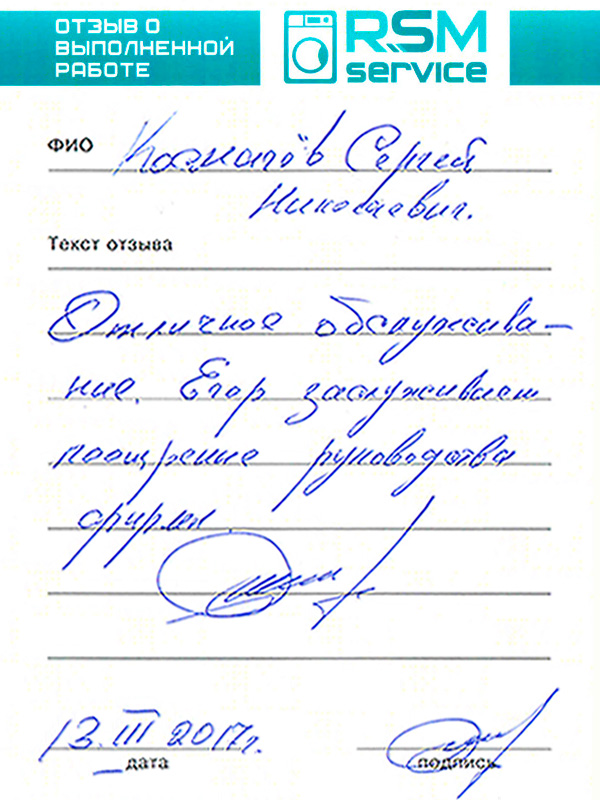 ОТЗЫВ О
ВЫПОЛНЕННОЙ
РАБОТЕ
RSM
service
ФИО
Сергей
Николаевич.
Текст отзыва
Отличное обслужива-
ние. Егор заслуживает
поощрение руководства
фирмы.
13. III 2017г.
дата
подпись